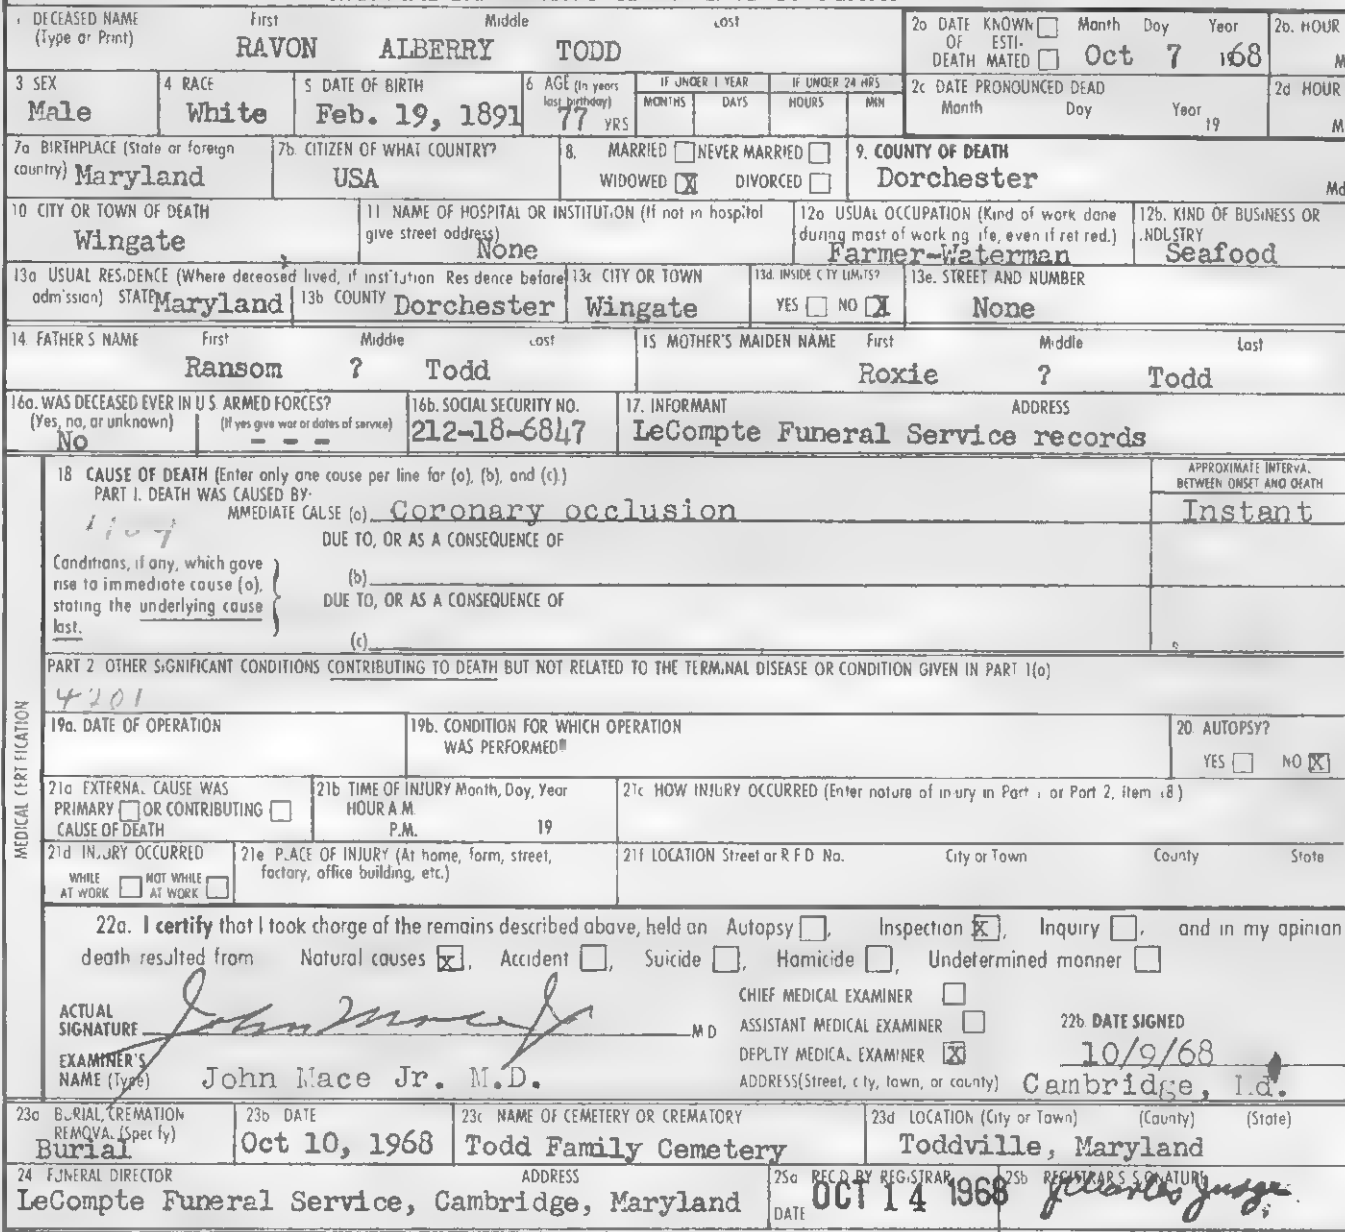 1 DECEASED NAME (Type or Print) First Middle Last
RAVON ALBERRY TODD
2a DATE OF DEATH KNOWN ESTIMATED Month Day Year
Oct 7 1968
2b. HOUR M
3 SEX
Male
4 RACE
White
5 DATE OF BIRTH
Feb. 19, 1891
6 AGE (In years last birthday)
77 YRS
IF UNDER 1 YEAR
MONTHS DAYS
IF UNDER 24 HRS
HOURS MIN
2c DATE PRONOUNCED DEAD
Month Day Year 19
2d HOUR M
7a BIRTHPLACE (State or foreign country) Maryland
7b. CITIZEN OF WHAT COUNTRY?
USA
8. MARRIED NEVER MARRIED
WIDOWED X DIVORCED
9. COUNTY OF DEATH
Dorchester Md
10 CITY OR TOWN OF DEATH
Wingate
11 NAME OF HOSPITAL OR INSTITUTION (If not in hospital give street address)
None
12a USUAL OCCUPATION (Kind of work done during most of working life, even if retired.)
Farmer-Waterman
12b. KIND OF BUSINESS OR INDUSTRY
Seafood
13a USUAL RESIDENCE (Where deceased lived, if institution Residence before admission) STATE Maryland
13b COUNTY Dorchester
13c CITY OR TOWN
Wingate
13d. INSIDE CITY LIMITS?
YES NO X
13e. STREET AND NUMBER
None
14 FATHER'S NAME First Middle Last
Ransom ? Todd
15 MOTHER'S MAIDEN NAME First Middle Last
Roxie ? Todd
16a. WAS DECEASED EVER IN U S ARMED FORCES?
(Yes, no, or unknown) (If yes give war or dates of service)
No - - -
16b. SOCIAL SECURITY NO.
212-18-6847
17. INFORMANT ADDRESS
LeCompte Funeral Service records
MEDICAL CERTIFICATION
18 CAUSE OF DEATH (Enter only one cause per line for (a), (b), and (c).)
APPROXIMATE INTERVAL BETWEEN ONSET AND DEATH
PART I. DEATH WAS CAUSED BY:
IMMEDIATE CAUSE (a) Coronary occlusion Instant
DUE TO, OR AS A CONSEQUENCE OF
Conditions, if any, which gave rise to immediate cause (a), stating the underlying cause last.
(b)
DUE TO, OR AS A CONSEQUENCE OF
(c)
PART 2 OTHER SIGNIFICANT CONDITIONS CONTRIBUTING TO DEATH BUT NOT RELATED TO THE TERMINAL DISEASE OR CONDITION GIVEN IN PART 1(a)
4201
19a. DATE OF OPERATION
19b. CONDITION FOR WHICH OPERATION WAS PERFORMED
20. AUTOPSY?
YES NO X
21a EXTERNAL CAUSE WAS
PRIMARY OR CONTRIBUTING
CAUSE OF DEATH
21b TIME OF INJURY Month, Day, Year
HOUR A.M.
P.M. 19
21c HOW INJURY OCCURRED (Enter nature of injury in Part 1 or Part 2, Item 18)
21d INJURY OCCURRED
WHILE AT WORK NOT WHILE AT WORK
21e PLACE OF INJURY (At home, farm, street, factory, office building, etc.)
21f LOCATION Street or R F D No. City or Town County State
22a. I certify that I took charge of the remains described above, held an Autopsy, Inspection X, Inquiry, and in my opinion
death resulted from Natural causes X, Accident, Suicide, Homicide, Undetermined manner
ACTUAL SIGNATURE John Mace Jr M D
CHIEF MEDICAL EXAMINER
ASSISTANT MEDICAL EXAMINER
DEPUTY MEDICAL EXAMINER X
22b. DATE SIGNED
10/9/68
EXAMINER'S NAME (Type) John Mace Jr. M.D.
ADDRESS (Street, city, town, or county) Cambridge, Md.
23a BURIAL, CREMATION REMOVAL (Specify)
Burial
23b DATE
Oct 10, 1968
23c NAME OF CEMETERY OR CREMATORY
Todd Family Cemetery
23d LOCATION (City or Town) (County) (State)
Toddville, Maryland
24 FUNERAL DIRECTOR ADDRESS
LeCompte Funeral Service, Cambridge, Maryland
25a REC'D BY REGISTRAR
DATE OCT 14 1968
25b REGISTRAR'S SIGNATURE